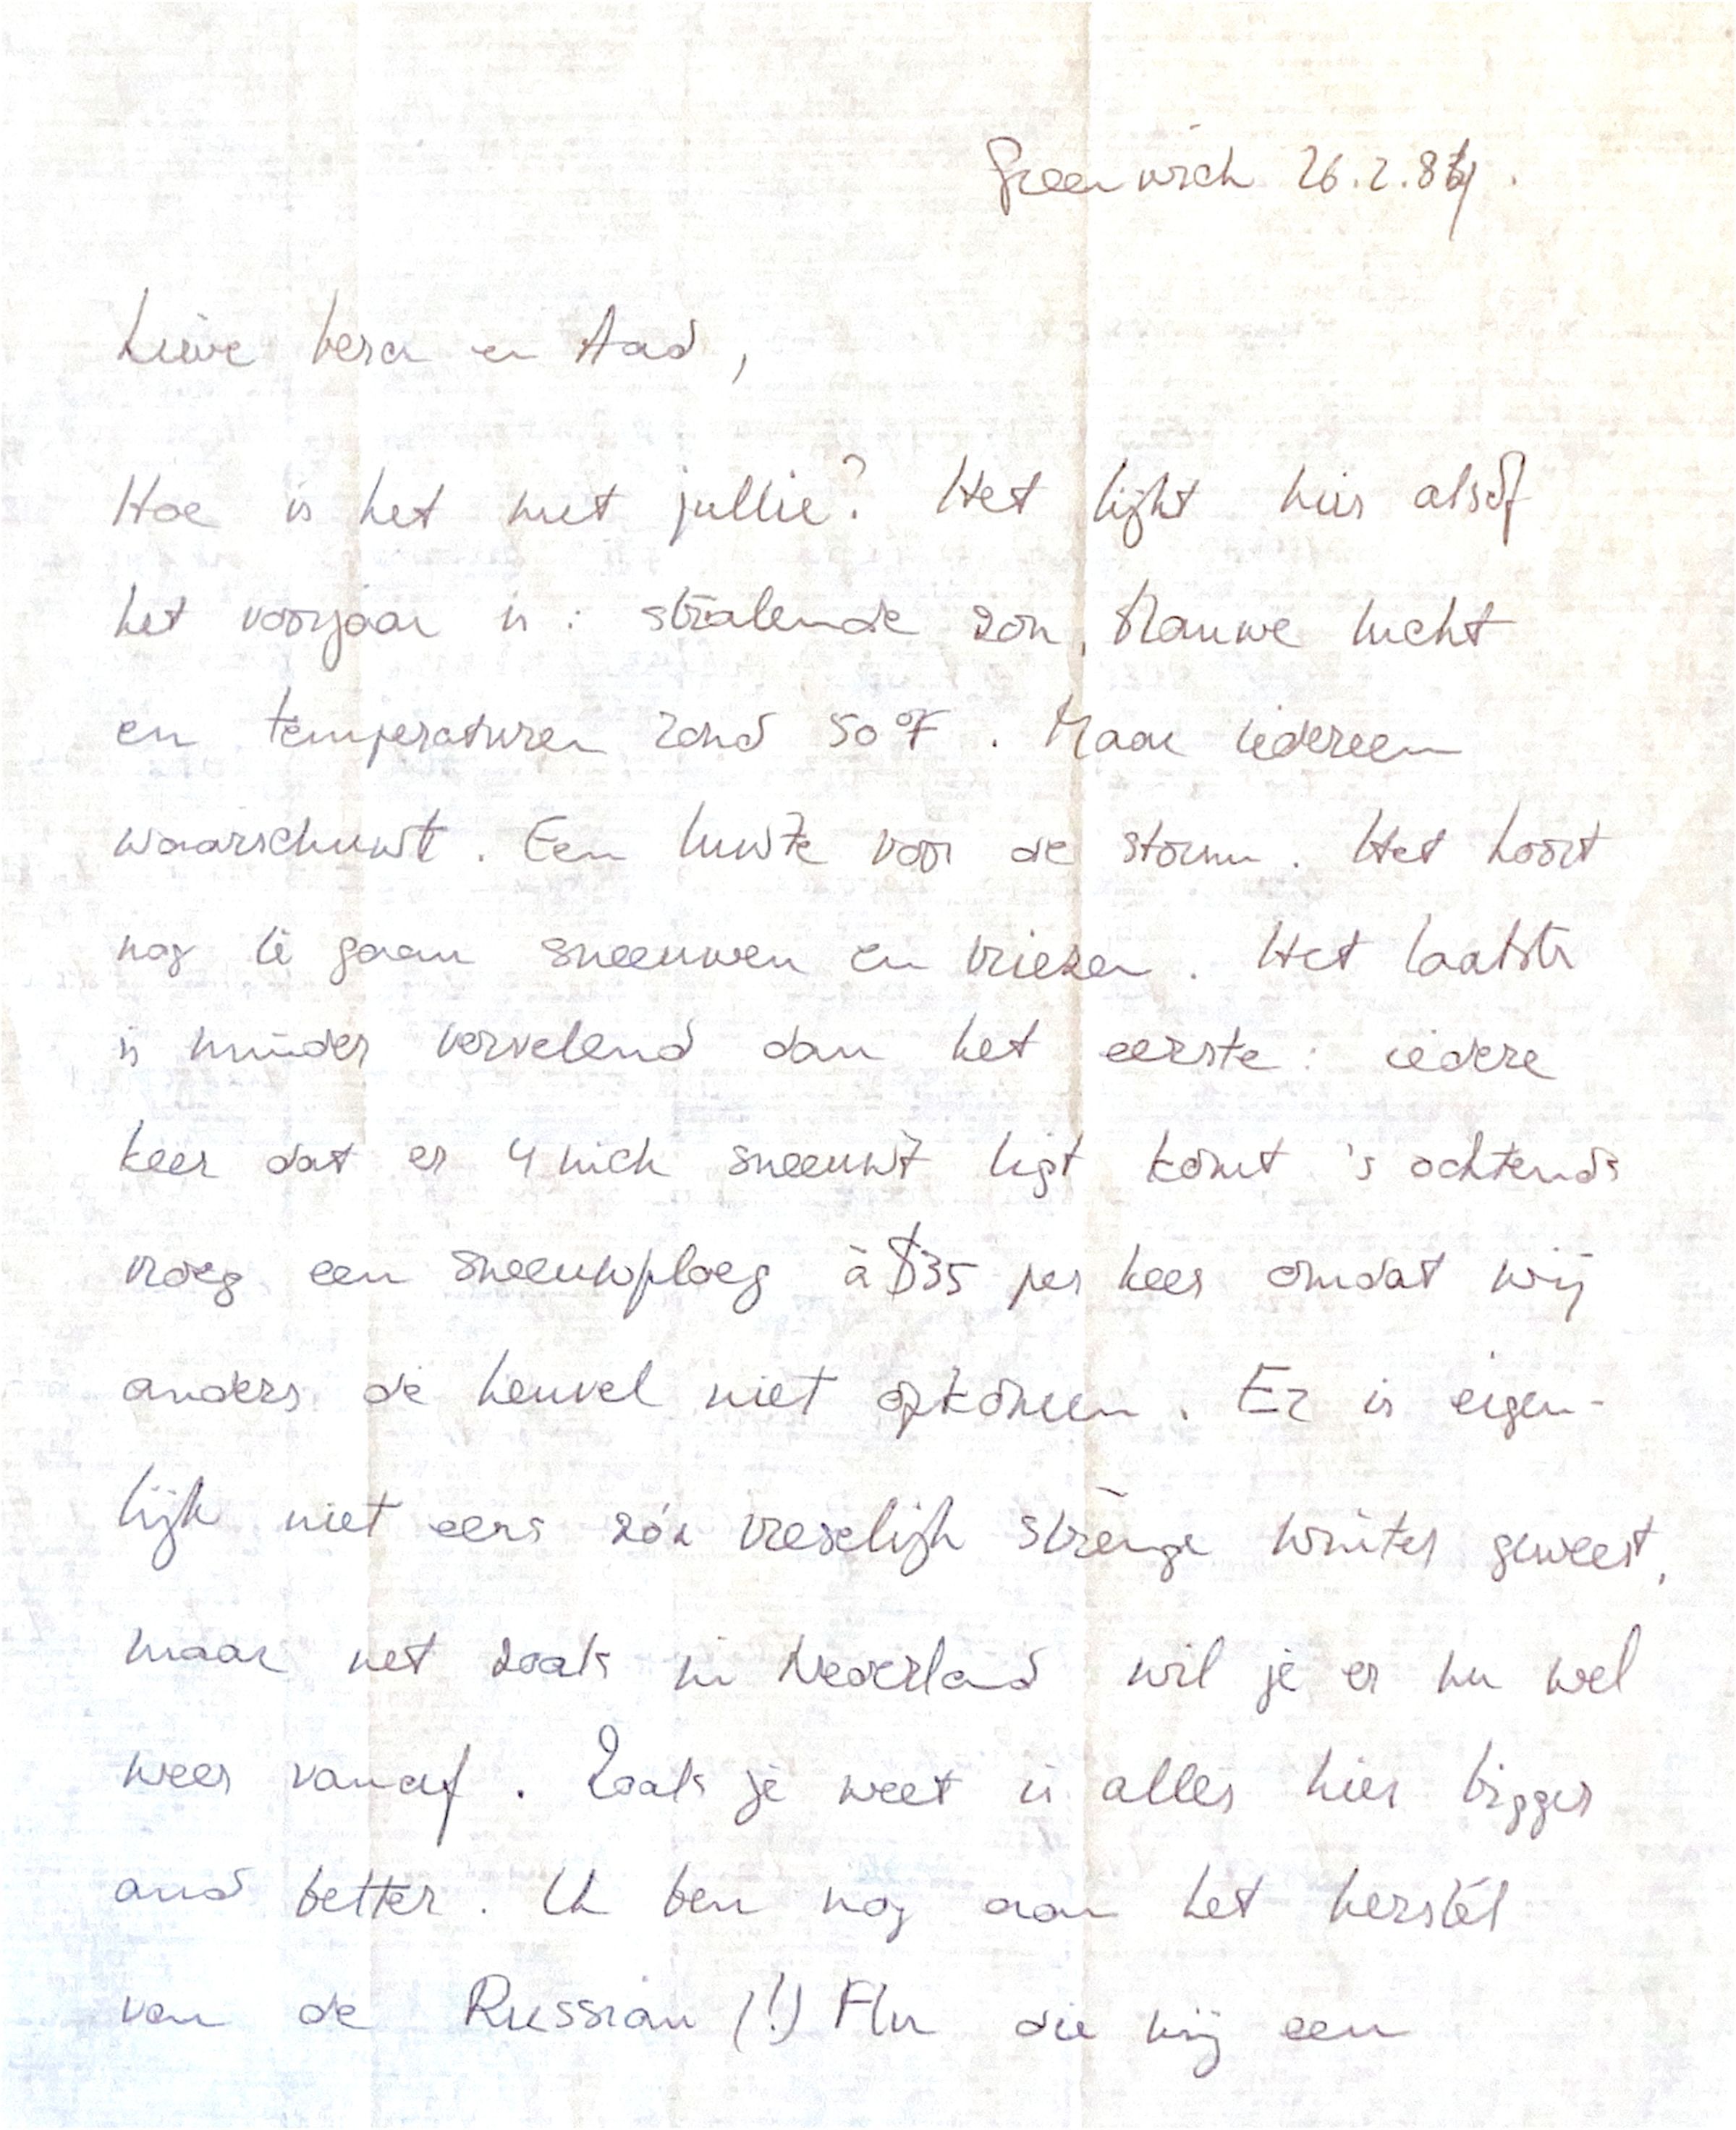 Greenwich 26.2.84.
Lieve Vera en Aad,
Hoe is het met jullie? Het lijkt hier alsof
het voorjaar is: stralende zon, blauwe lucht
en temperaturen rond 50°F. Maar iedereen
waarschuwt. Een luwte voor de storm. Het hoort
nog te gaan sneeuwen en vriezen. Het laatste
is minder vervelend dan het eerste: iedere
keer dat er 4 inch sneeuwt ligt komt 's ochtends
vroeg een sneeuwploeg à $35 per keer omdat wij
anders de heuvel niet opkomen. Er is eigen-
lijk niet eens zo'n vreselijk strenge winter geweest,
maar net zoals in Nederland wil je er nu wel
weer vanaf. Zoals je weet is alles hier bigger
and better. Ik ben nog aan het herstel
van de Russian (!) Flu die mij een